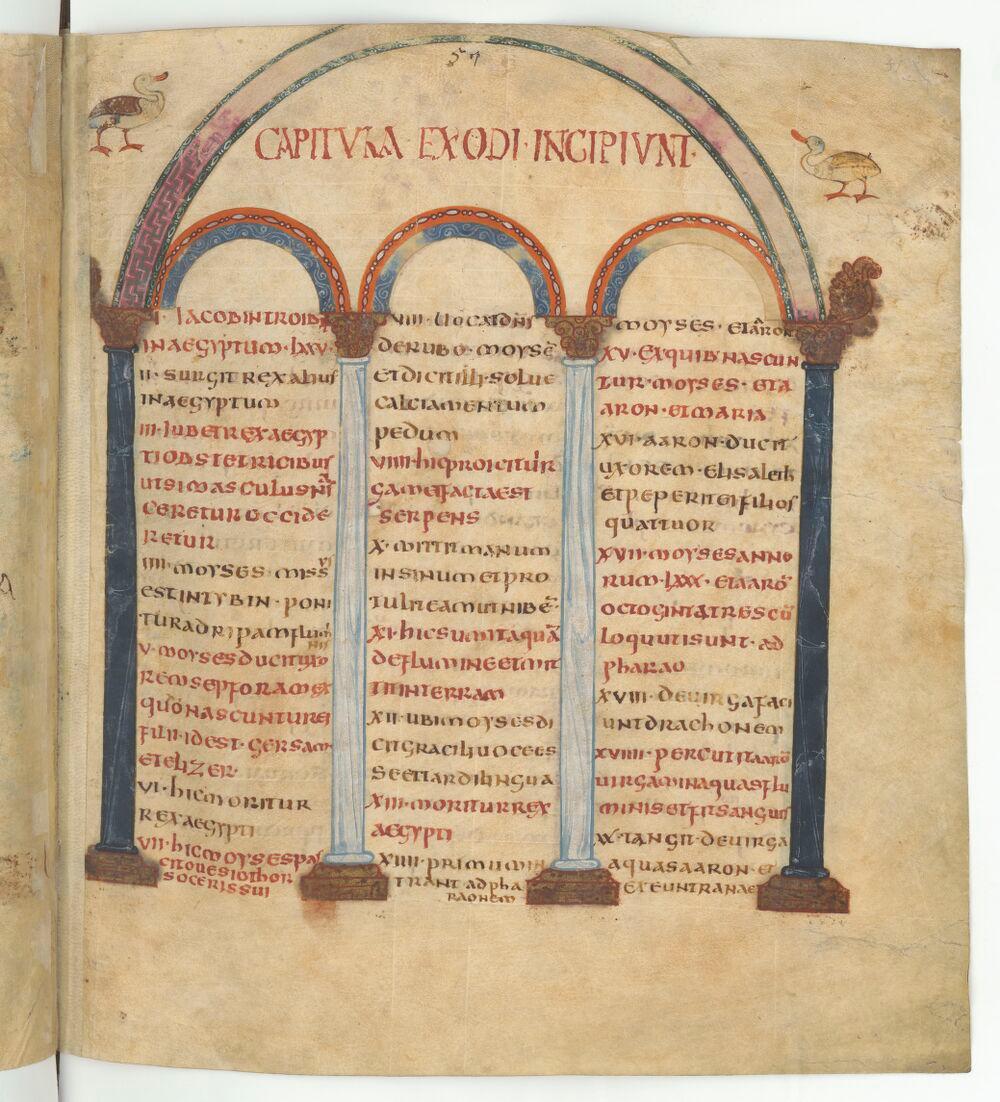 57
CAPITULA EXODI INCIPIUNT
I· IACOB INTROIB;
IN AEGYPTUM· LXXV·
II· SURGIT REX ALIUS
IN AEGYPTUM
III· IUBET REX AEGYP
TI OBSTETRICIBUS
UT SI MASCULUS NAS
CERETUR OCCIDE
RETUR
IIII· MOYSES MISSUS
EST IN TYBIN· PONI
TUR AD RIPAM FLUMINIS
V· MOYSES DUCIT UXO
REM SEPFORAM EX
QUO NASCUNTUR EI
FILII· ID EST· GERSAM
ET ELIZER·
VI· HIC MORITUR
REX AEGYPTI
VII· HIC MOYSES PAS
CIT OVES IOTHOR
SOCERIS SUI
VIII· UOCAT DNS
DE RUBO· MOYSE̅
ET DICIT ILLI· SOLUE
CALCIAMENTUM
PEDUM
VIIII· HIC PROICIT UIR
GAM ET FACTA EST
SERPENS
X· MITTIT MANUM
IN SINUM ET PRO
TULIT EAM UT NIBE̅·
XI· HIC SUMIT AQUA̅
DE FLUMINE ET MIT
TIT IN TERRAM
XII· UBI MOYSES DI
CIT GRACILI UOCE ES
SE ET TARDI LINGUA
XIII· MORITUR REX
AEGYPTI
XIIII· PRIMUM IN
TRANT AD PHA
RAONEM
MOYSES· ET AARON
XV· EX QUIB; NASCUN
TUR· MOYSES· ET A
ARON· ET MARIA
XVI· AARON· DUCIT
UXOREM· ELISABETH
ET PEPERIT EI FILIOS
QUATTUOR
XVII· MOYSES ANNO
RUM· LXXX· ET AARO̅
OCTOGINTA TRES CU̅
LOQUUTI SUNT· AD
PHARAO
XVIII· DE UIRGA FACI
UNT DRACHONEM
XVIIII· PERCUTIT AARO̅
UIRGAM IN AQUAS FLU
MINIS ET FIT SANGUIS
XX· TANGIT· DE UIRGA
AQUAS AARON· ET
EXEUNT RANAE